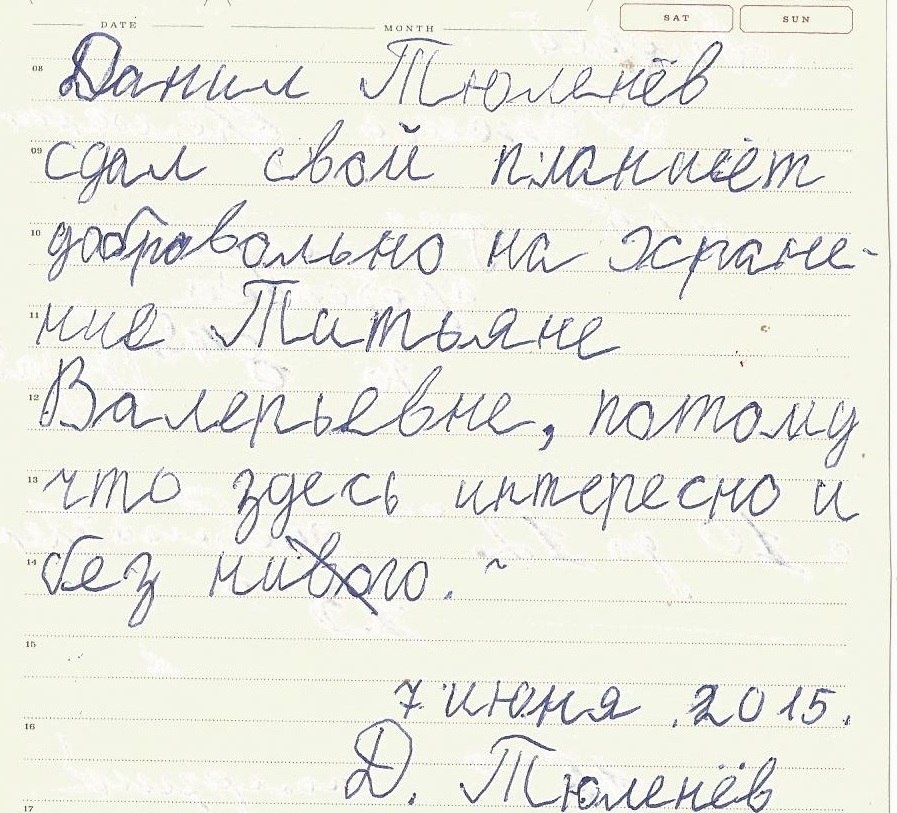 DATE MONTH SAT SUN
08 Данил Тюленёв
09 сдал свой планшет
10 добровольно на хране-
11 ние Татьяне
12 Валерьевне, потому
13 что здесь интересно и
14 без нивого.
15
7 июня 2015.
16
Д. Тюленёв
17